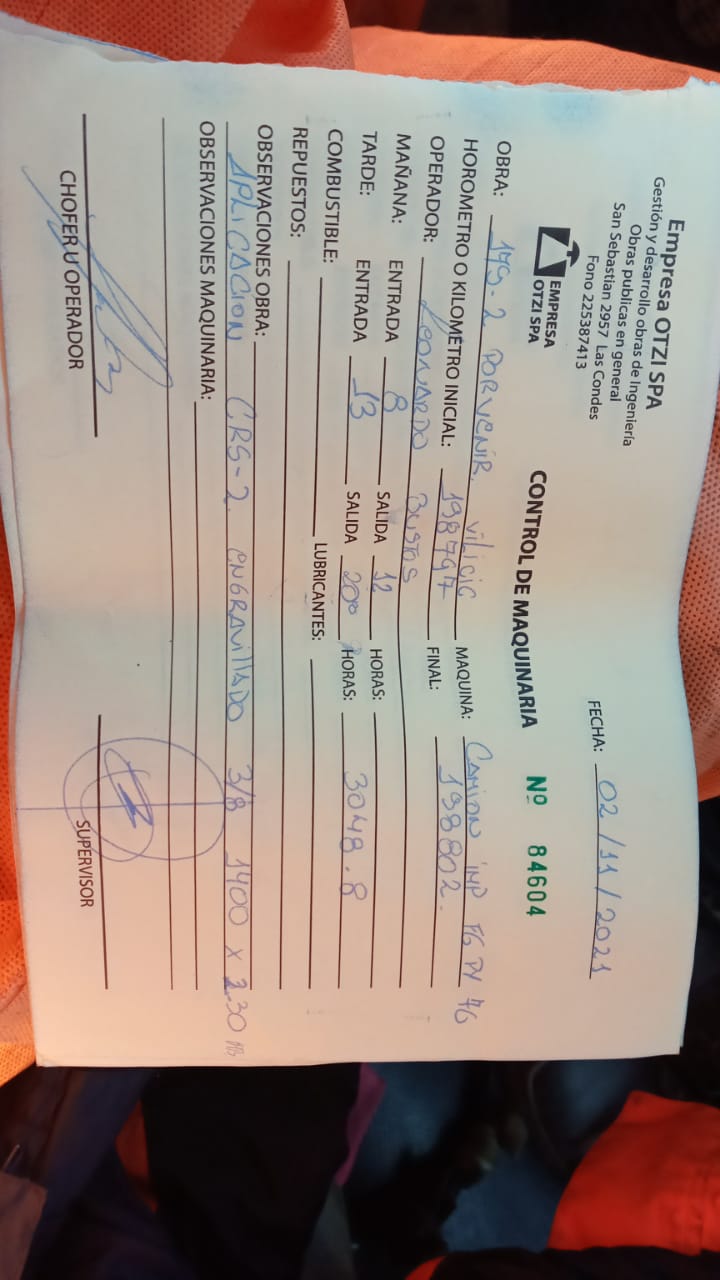 Empresa OTZI SPA
Gestión y desarrollo obras de Ingeniería
Obras publicas en general
San Sebastian 2957 Las Condes
Fono 225387413
EMPRESA
OTZI SPA
FECHA: 02/11/2021
CONTROL DE MAQUINARIA Nº 84604
OBRA: 179-2 PORVENIR. VILICIC MAQUINA: CAMION IMP FG PY 76
HOROMETRO O KILOMETRO INICIAL: 198797 FINAL: 198802.
OPERADOR: LEONARDO BUSTOS
MAÑANA: ENTRADA 8 SALIDA 12 HORAS:
TARDE: ENTRADA 13 SALIDA 20⁰⁰ HORAS: 3048.8
COMBUSTIBLE: LUBRICANTES:
REPUESTOS:
OBSERVACIONES OBRA:
APLICACION CRS-2. ENGRAVILLADO 3/8 1400 x 1.30 Mts
OBSERVACIONES MAQUINARIA:
CHOFER U OPERADOR SUPERVISOR